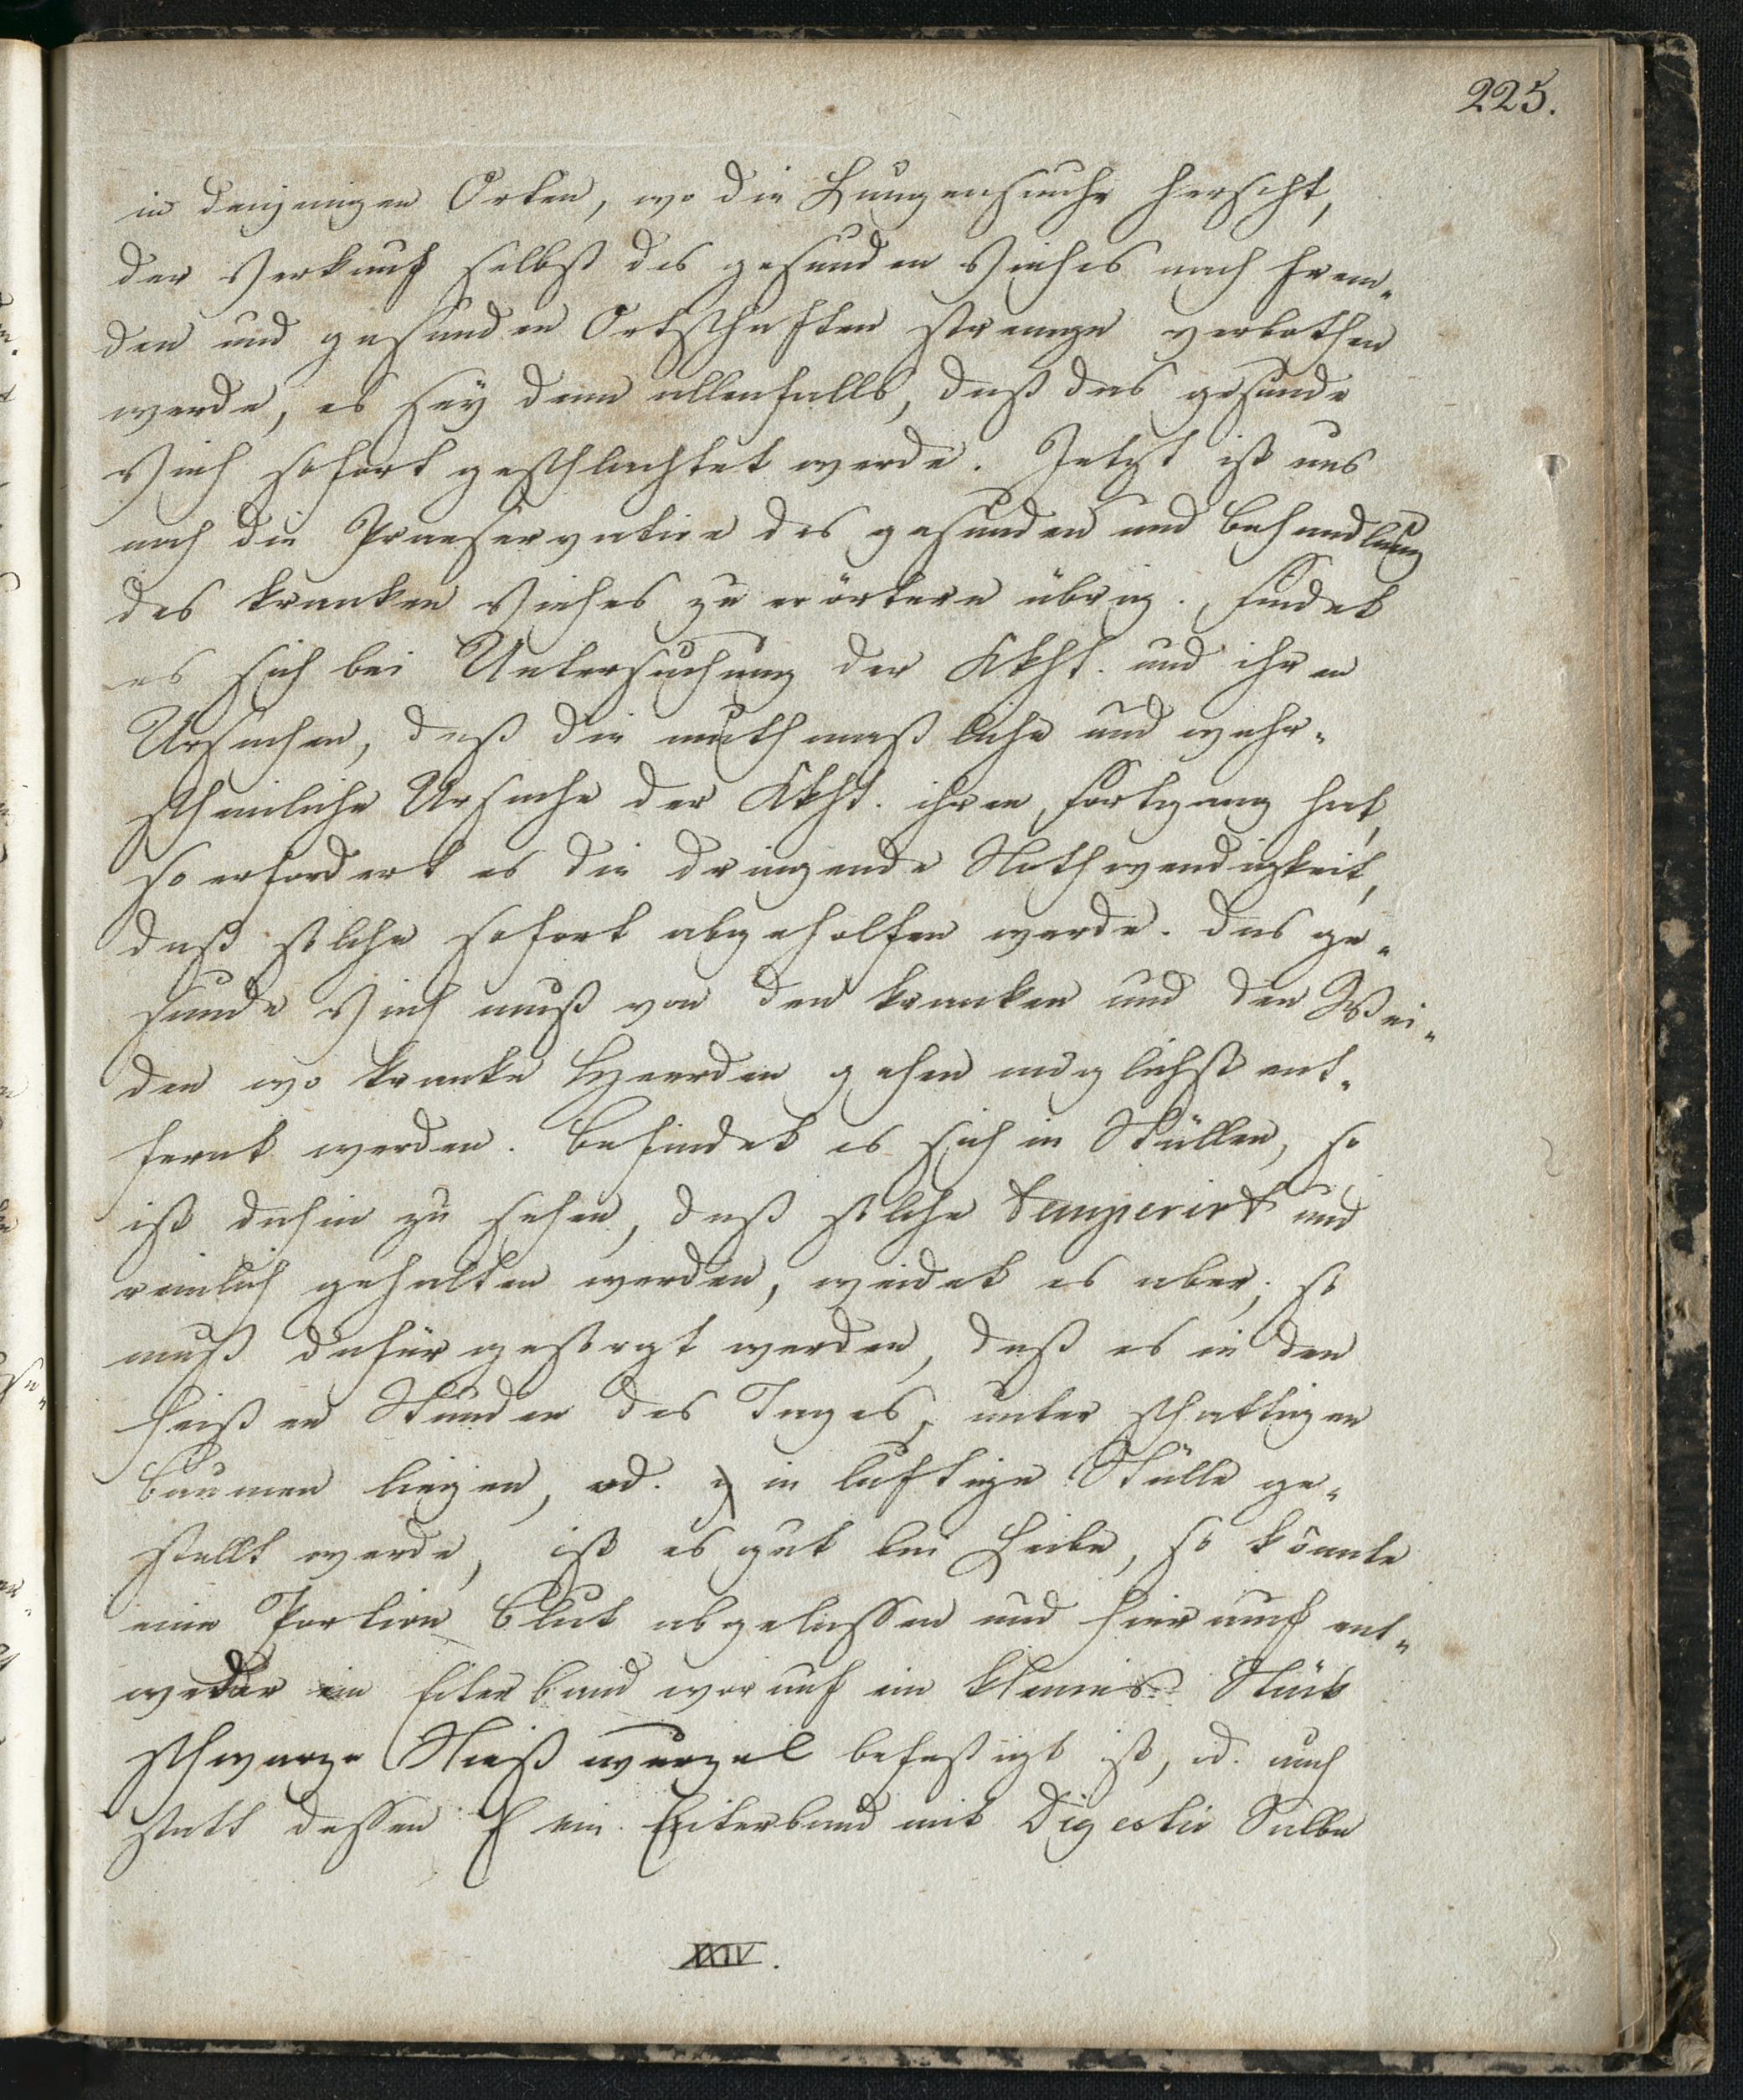 225.
in denjenigen Orten, wo die Lungenseuche herscht,
der Verkauf selbst des gesunden Viehes nach frem-
den und gesunden Ortschaften strenge verbothen
werde, es sey denn allenfalls, daß das gesunde
Vieh sofort geschlachtet werde. Jetzt ist uns
noch die Praeservation des gesunden und Behandlung
des kranken Viehes zu erörtern übrig. Findet
es sich bei Untersuchung der Kkht. und ihren
Ursachen, daß die muthmasliche und wahr-
scheinliche Ursache der Kkht. ihren Fortgang hat,
so erfordert es die dringende Nothwendigkeit,
daß solche sofort abgeholfen werde. Das ge-
sunde Vieh muß von den kranken und den Wei-
den wo kranke Heerden gehen möglichst ent-
fernt werden. Befindet es sich in Ställen, so
ist dahin zu sehen, daß solche temperirt und
reinlich gehalten werden, weidet es aber; so
muß dafür gesorgt werden, daß es in den
heißen Stunden des Tages, unter schattigen
Bäumen liegen, od. in luftige Ställe ge-
stellt werde, ist es gut bei Leibe, so könnte
eine Portion Blut abgelassen und hierauf ent-
weder ein Eiterband worauf ein kleines Stück
schwarze Nießwurzel befestigt ist, od. auch
statt dessen ein Eiterband mit Digestiv Salbe
XXIV.